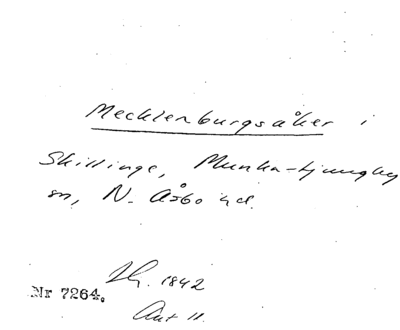 Mecklenburgsåker i
Skillinge, Munka-Ljungby
sn, N. Åsbo hd.
1842
Nr 7264.
Akt 11.